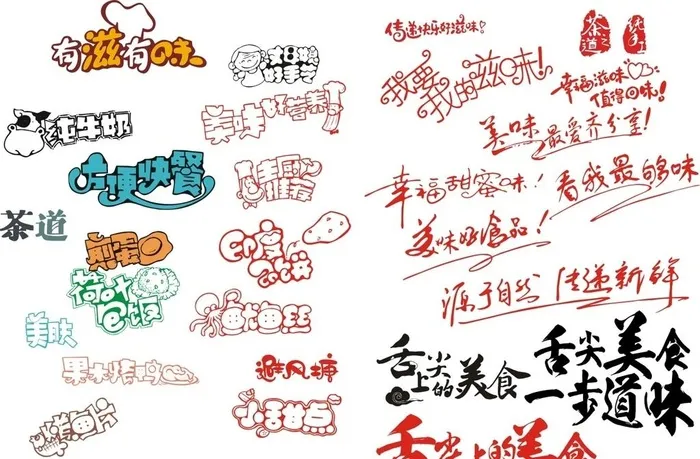 有滋有味
纯牛奶
方便快餐
茶道
煎蛋
荷叶
包饭
美肤
果木烤鸡
鱼片
好手艺
美味好营养
主厨
推荐
印度
鱿鱼丝
避风塘
小甜点
传递快乐好滋味!
我要
我的滋味!
茶之道
纯手工
幸福滋味
值得回味!
美味 最爱齐分享!
幸福甜蜜味! 看我最的够味
美味好食品!
源于自然 传递新鲜
舌尖
上的美食
舌尖美食
一步道味
舌尖上的美食